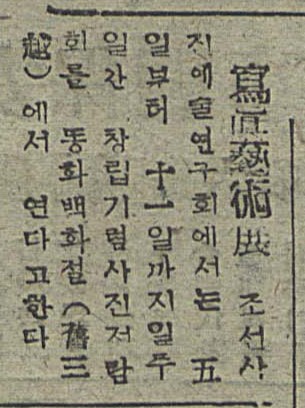 寫眞藝術展 조선사
진예술연구회에서는 五
일부터 十一일까지일주
일간 창립기렴사진저람
회를 동화백화점(舊三
越)에서 연다고한다